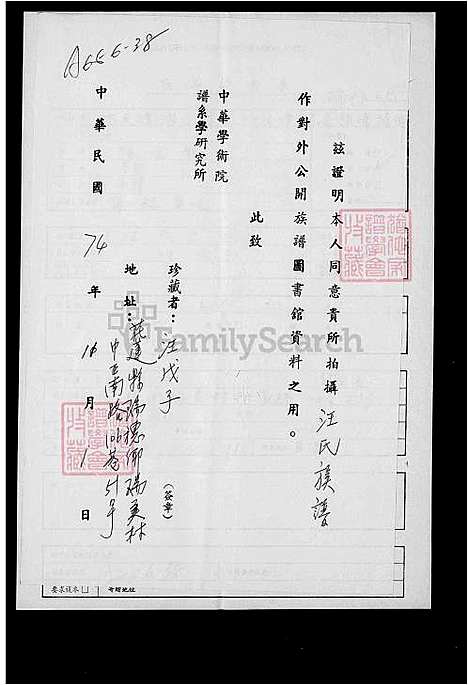 A656-38
茲證明本人同意貴所拍攝汪氏族譜
作對外公開族譜圖書館資料之用。
此致
中華學術院
譜系學研究所
珍藏者：汪戊子
（簽章）
地址：花蓮縣瑞穗鄉瑞美村
中正南路106巷51号
中華民國74年10月1日
FamilySearch